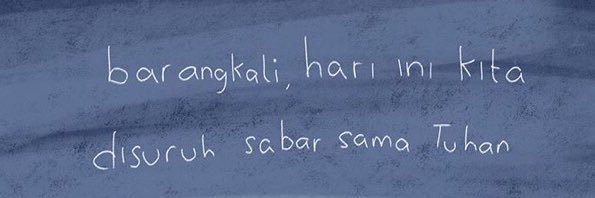 barangkali, hari ini kita
disuruh sabar sama Tuhan